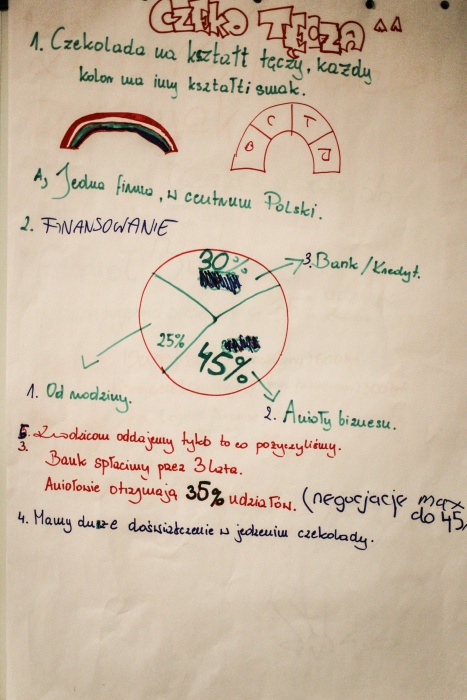 CZEKO TĘCZA ^^
1. Czekolada na kształt tęczy, każdy
kolor ma inny kształt i smak.
B C T J
A, Jedna firma, w centrum Polski.
2. FINANSOWANIE
30%
3. Bank / Kredyt.
25%
45%
1. Od rodziny.
2. Anioły biznesu.
3. Rodzicom oddajemy tylko to co pożyczyliśmy.
Bank spłacimy przez 3 lata.
Aniołowie otrzymają 35% udziałów. (negocjacje max
do 45
4. Mamy duże doświadczenie w jedzeniu czekolady.